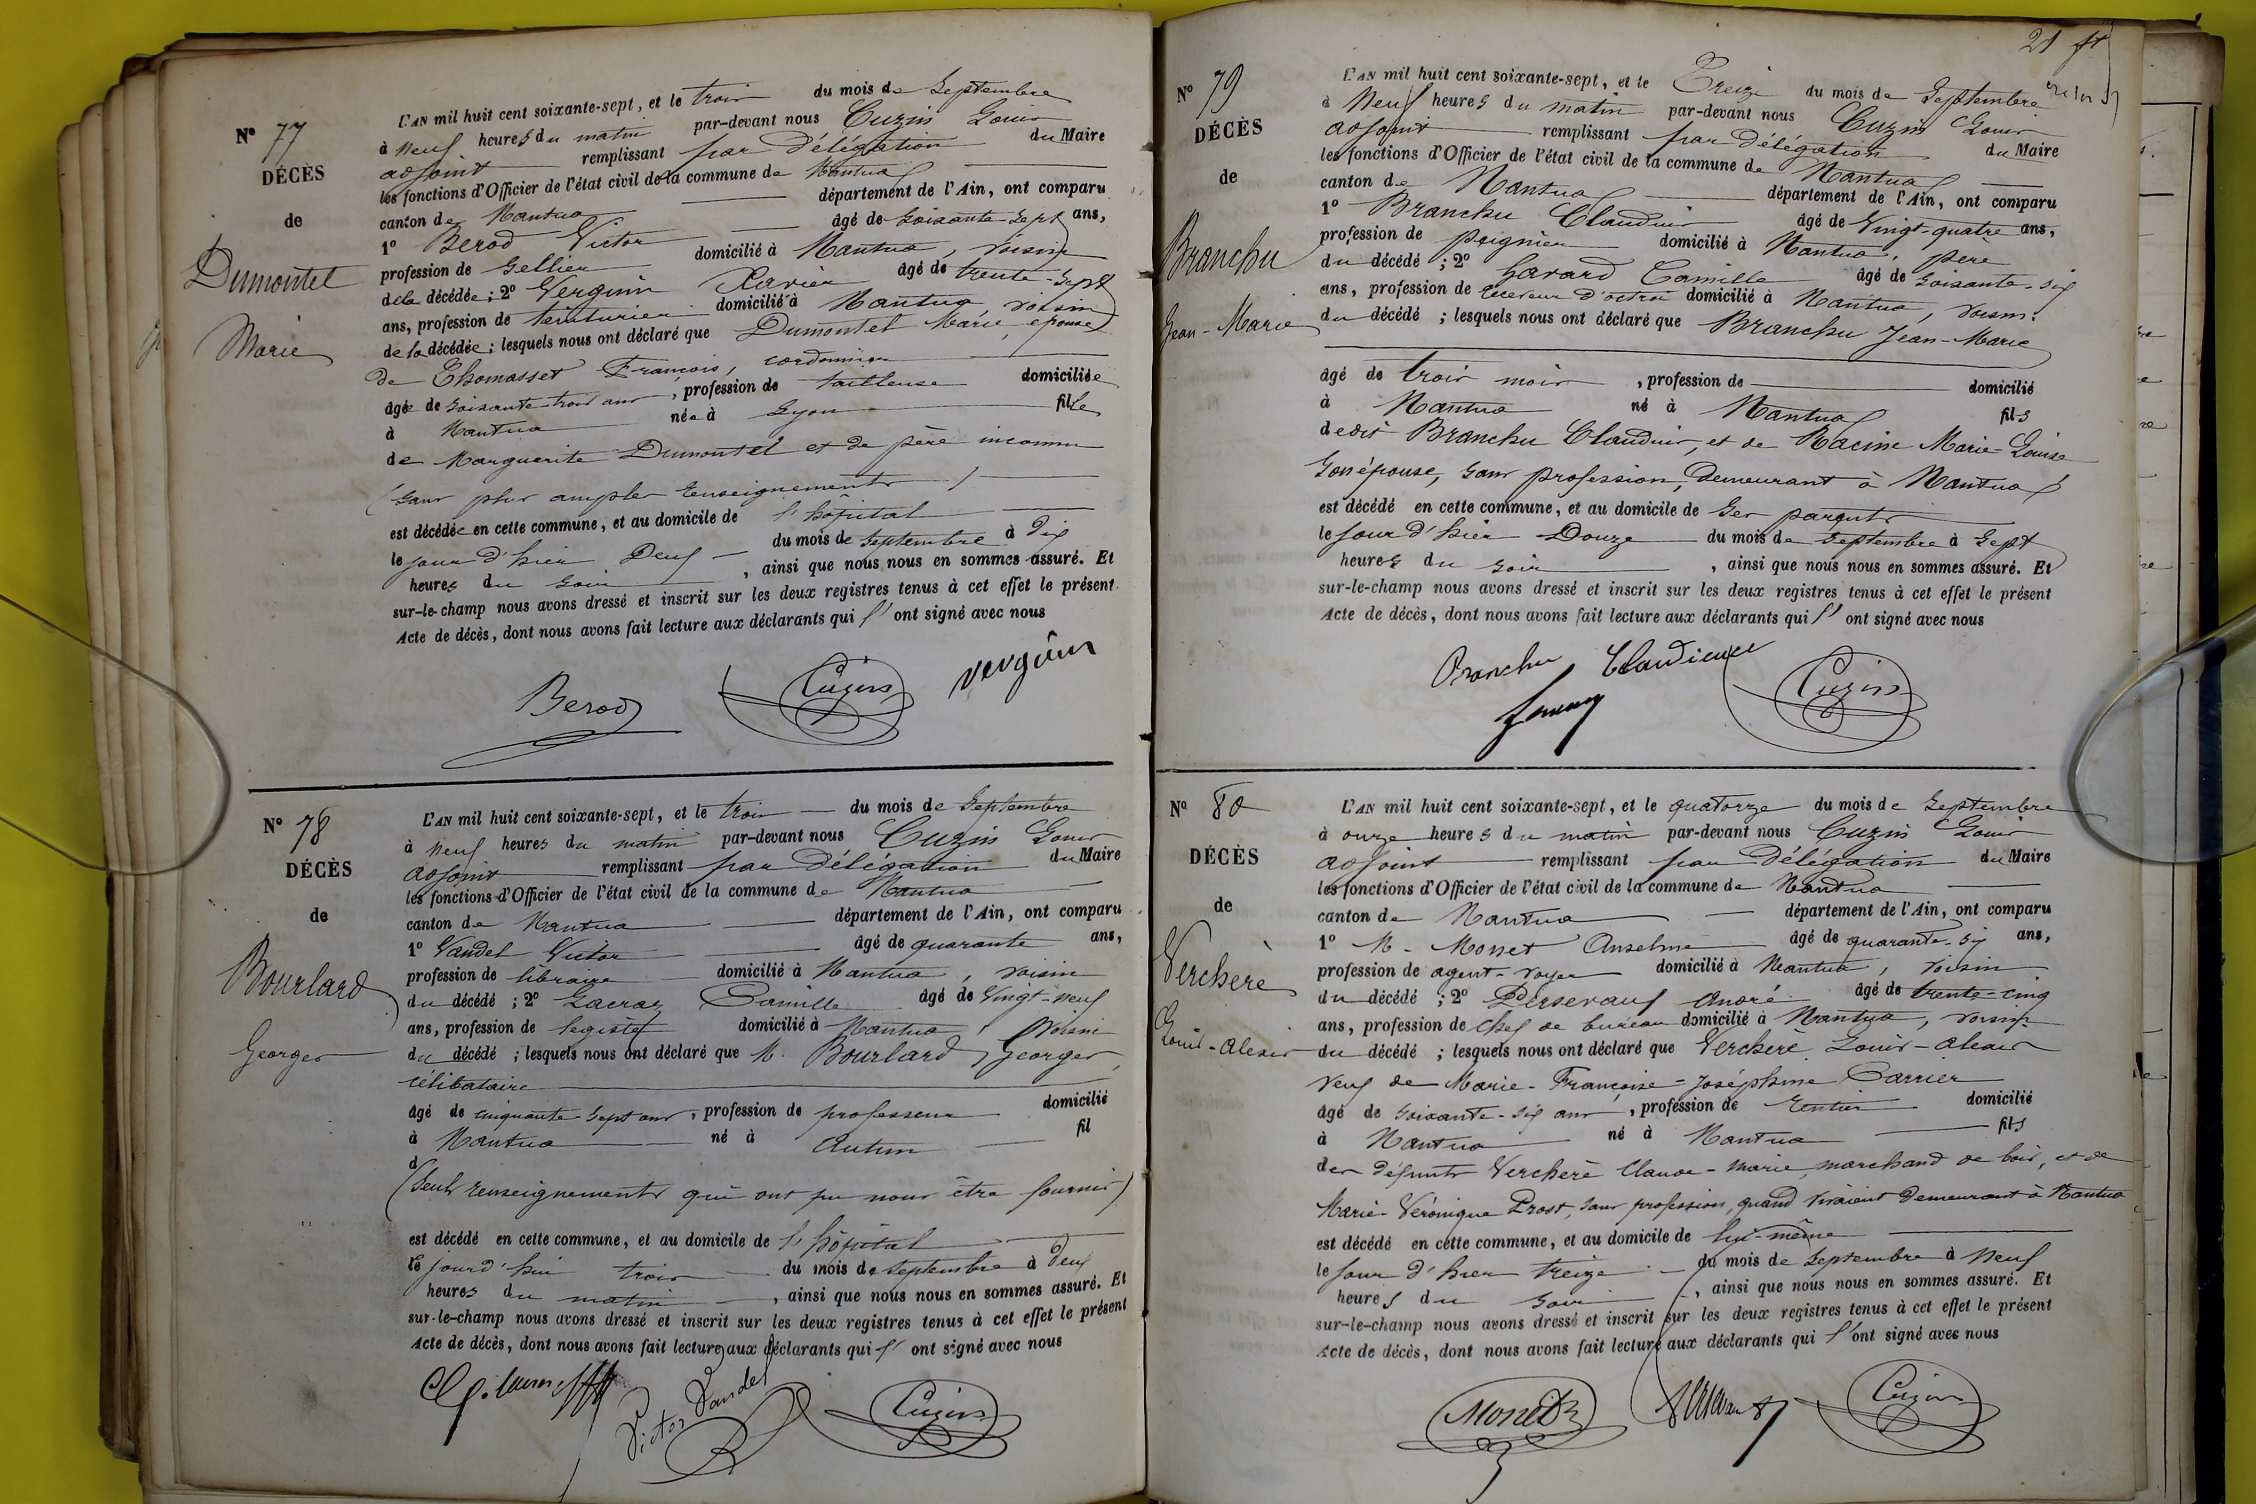 Nº 77
DÉCÈS
de
Dumontel
Marie
L'AN mil huit cent soixante-sept, et le trois du mois de Septembre
à neuf heures du matin par-devant nous Cuzin Louis
adjoint remplissant par Délégation du Maire
les fonctions d'Officier de l'état civil de la commune de Nantua
canton de Nantua département de l'Ain, ont comparu
1º Berod Victor âgé de Soixante-Sept ans,
profession de Sellier domicilié à Nantua, voisin
de la décédée; 2º Verguin Xavier âgé de trente-Sept
ans, profession de teinturier domicilié à Nantua voisin
de la décédée; lesquels nous ont déclaré que Dumontel Marie, épouse
de Thomasset François, cordonnier
âgée de Soixante-trois ans, profession de tailleuse domiciliée
à Nantua née à Lyon fille
de Marguerite Dumontel et de père inconnu
(Sans plus amples renseignements)
est décédée en cette commune, et au domicile de l'hôpital
le jour d'hier Deux du mois de Septembre à Dix
heures du Soir, ainsi que nous nous en sommes assuré. Et
sur-le-champ nous avons dressé et inscrit sur les deux registres tenus à cet effet le présent
Acte de décès, dont nous avons fait lecture aux déclarants qui l' ont signé avec nous
Berod Cuzin verguin
Nº 78
DÉCÈS
de
Bourlard
Georges
L'AN mil huit cent soixante-sept, et le trois du mois de Septembre
à neuf heures du matin par-devant nous Cuzin Louis
adjoint remplissant par Délégation du Maire
les fonctions d'Officier de l'état civil de la commune de Nantua
canton de Nantua département de l'Ain, ont comparu
1º Vandel Victor âgé de quarante ans,
profession de libraire domicilié à Nantua, voisin
du décédé; 2º Camille âgé de Vingt-neuf
ans, profession de légiste domicilié à Nantua, voisin
du décédé; lesquels nous ont déclaré que M. Bourlard Georges,
célibataire
âgé de cinquante Sept ans, profession de professeur domicilié
à Nantua né à Autun fil
d
(Seuls renseignements qui ont pu nous être fournis)
est décédé en cette commune, et au domicile de l'hôpital
le jourd'hui trois du mois de Septembre à Deux
heures du matin, ainsi que nous nous en sommes assuré. Et
sur-le-champ nous avons dressé et inscrit sur les deux registres tenus à cet effet le présent
Acte de décès, dont nous avons fait lecture aux déclarants qui l' ont signé avec nous
Victor Vandel Cuzin
21
Nº 79
DÉCÈS
de
Branchu
Jean-Marie
L'AN mil huit cent soixante-sept, et le Treize du mois de Septembre
à Neuf heures du matin par-devant nous Cuzin Louis
adjoint remplissant par Délégation du Maire
les fonctions d'Officier de l'état civil de la commune de Nantua
canton de Nantua département de l'Ain, ont comparu
1º Branchu Claudius âgé de Vingt-quatre ans,
profession de peignier domicilié à Nantua, père
du décédé; 2º Camille âgé de Soixante-six
ans, profession de receveur d'octroi domicilié à Nantua, voisin
du décédé; lesquels nous ont déclaré que Branchu Jean-Marie
âgé de trois mois, profession de domicilié
à Nantua né à Nantua fils
dedit Branchu Claudius, et de Racine Marie-Louise
Son épouse, Sans profession, Demeurant à Nantua
est décédé en cette commune, et au domicile de Ses parents
le jour d'hier Douze du mois de Septembre à Sept
heures du Soir, ainsi que nous nous en sommes assuré. Et
sur-le-champ nous avons dressé et inscrit sur les deux registres tenus à cet effet le présent
Acte de décès, dont nous avons fait lecture aux déclarants qui l' ont signé avec nous
Branchu Cuzin
Nº 80
DÉCÈS
de
Verchère
Louis-Alexis
L'AN mil huit cent soixante-sept, et le quatorze du mois de Septembre
à onze heures du matin par-devant nous Cuzin Louis
adjoint remplissant par Délégation du Maire
les fonctions d'Officier de l'état civil de la commune de Nantua
canton de Nantua département de l'Ain, ont comparu
1º M. Monet Anselme âgé de quarante-six ans,
profession de agent-voyer domicilié à Nantua, voisin
du décédé; 2º André âgé de trente-cinq
ans, profession de chef de bureau domicilié à Nantua, voisin
du décédé; lesquels nous ont déclaré que Verchère Louis-Alexis
veuf de Marie-Françoise-Joséphine Carrier
âgé de Soixante-six ans, profession de rentier domicilié
à Nantua né à Nantua fils
des défunts Verchère Claude-Marie marchand de bois, et de
Marie-Véronique Prost, sans profession, quand vivaient demeurant à Nantua
est décédé en cette commune, et au domicile de lui-même
le jour d'hier treize du mois de Septembre à Neuf
heures du Soir, ainsi que nous nous en sommes assuré. Et
sur-le-champ nous avons dressé et inscrit sur les deux registres tenus à cet effet le présent
Acte de décès, dont nous avons fait lecture aux déclarants qui l'ont signé avec nous
Monet Cuzin